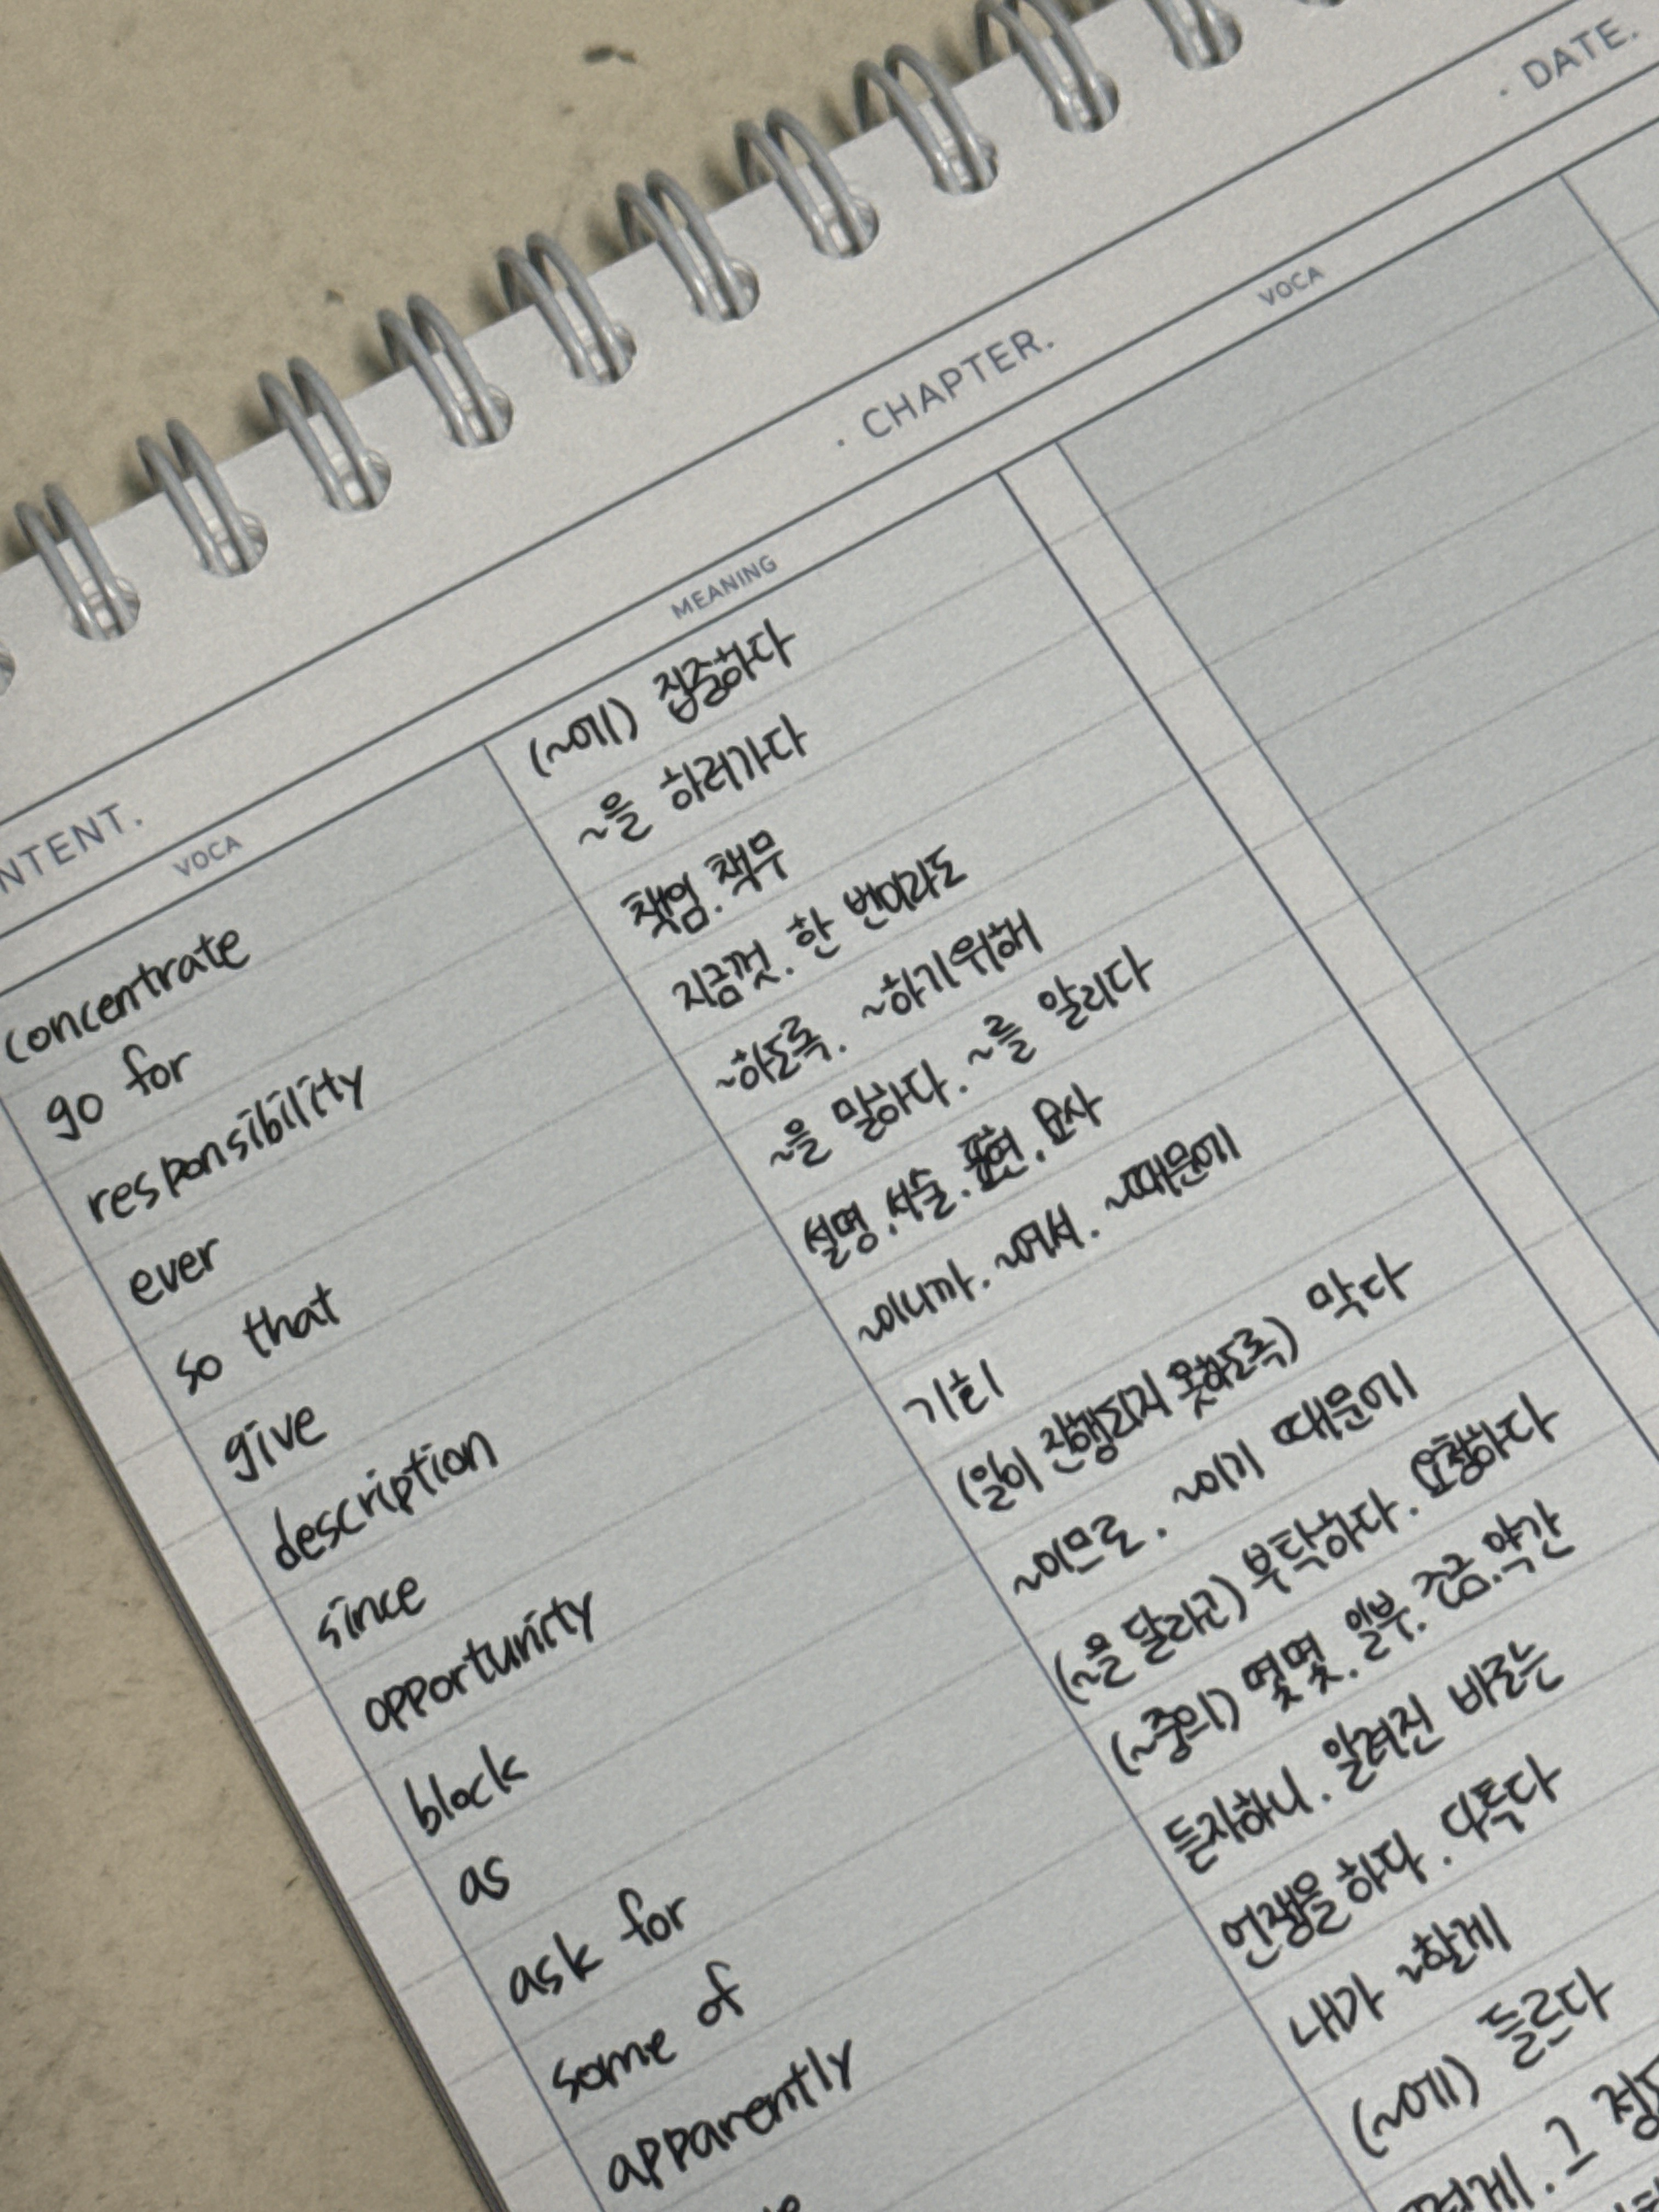 · CHAPTER.
· DATE.
NTENT.
VOCA
MEANING
VOCA
concentrate (~에) 집중하다
go for ~을 하러가다
responsibility 책임. 책무
ever 지금껏. 한 번이라도
so that ~하도록. ~하기위해
give ~을 말하다. ~를 알리다
description 설명. 서술. 표현. 묘사
since ~이니까. ~여서. ~때문에
opportunity 기회
block (일이 진행되지 못하도록) 막다
as ~이므로. ~이기 때문에
ask for (~을 달라고) 부탁하다. 요청하다
some of (~중의) 몇몇. 일부. 조금. 약간
apparently 듣자하니. 알려진 바로는
언쟁을 하다. 다투다
내가 ~할게
(~에) 들르다
그